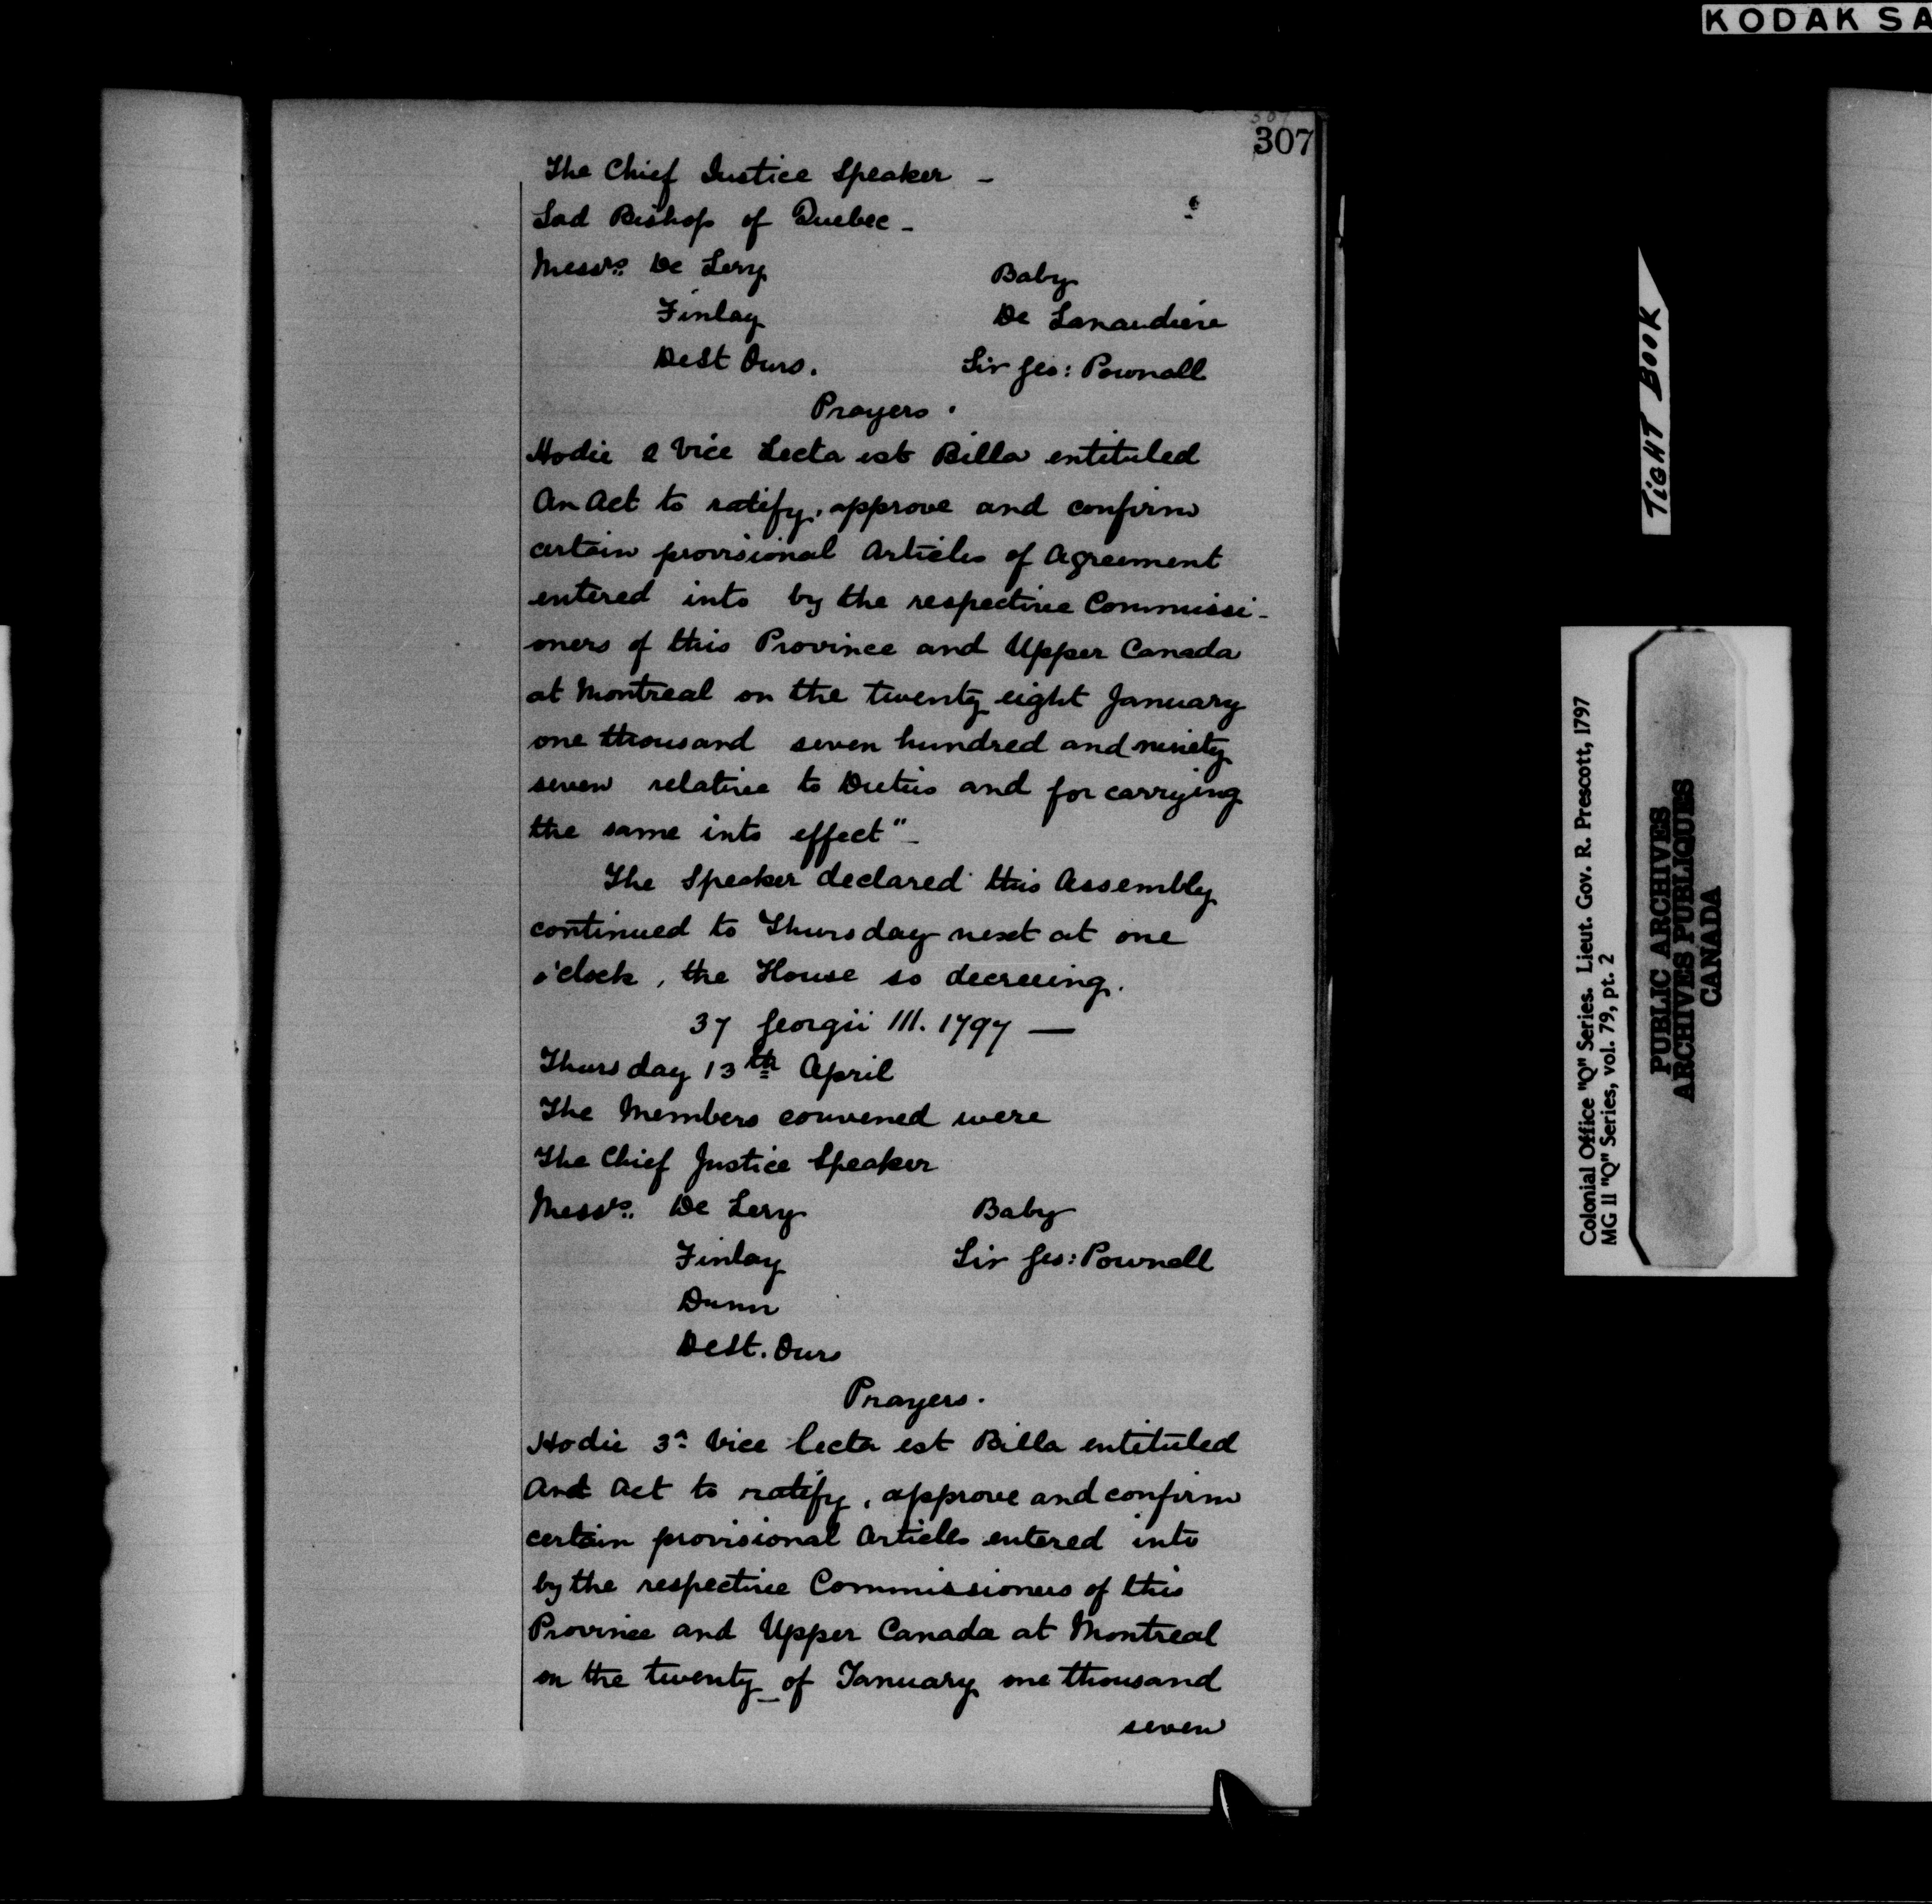 KODAK SA
307
307
The Chief Justice Speaker -
Lod Bishop of Quebec -
Messrs. De Lery Baby
Finlay De Lanaudiere
DeSt Ours. Sir Geo: Pownall
Prayers.
Hodie 2 Vice Lecta est Billa entituled
An Act to ratify, approve and confirm
certain provisional Articles of Agreement
entered into by the respective Commissi-
oners of this Province and Upper Canada
at Montreal on the twenty eight January
one thousand seven hundred and ninety
seven relative to Duties and for carrying
the same into effect" -
The Speaker declared this Assembly
continued to Thursday next at one
o'clock, the House so decreeing.
37 Georgii III. 1797 —
Thursday 13th April
The Members convened were
The Chief Justice Speaker
Messrs. De Lery Baby
Finlay Sir Geo: Pownall
Dunn
DeSt. Ours
Prayers.
Hodie 3a Vice lecta est Billa entituled
And Act to ratify, approve and confirm
certain provisional Articles entered into
by the respective Commissioners of this
Province and Upper Canada at Montreal
on the twenty _ of January one thousand
seven
TIGHT BOOK
Colonial Office "Q" Series. Lieut. Gov. R. Prescott, 1797
MG 11 "Q" Series, vol. 79, pt. 2
PUBLIC ARCHIVES
ARCHIVES PUBLIQUES
CANADA